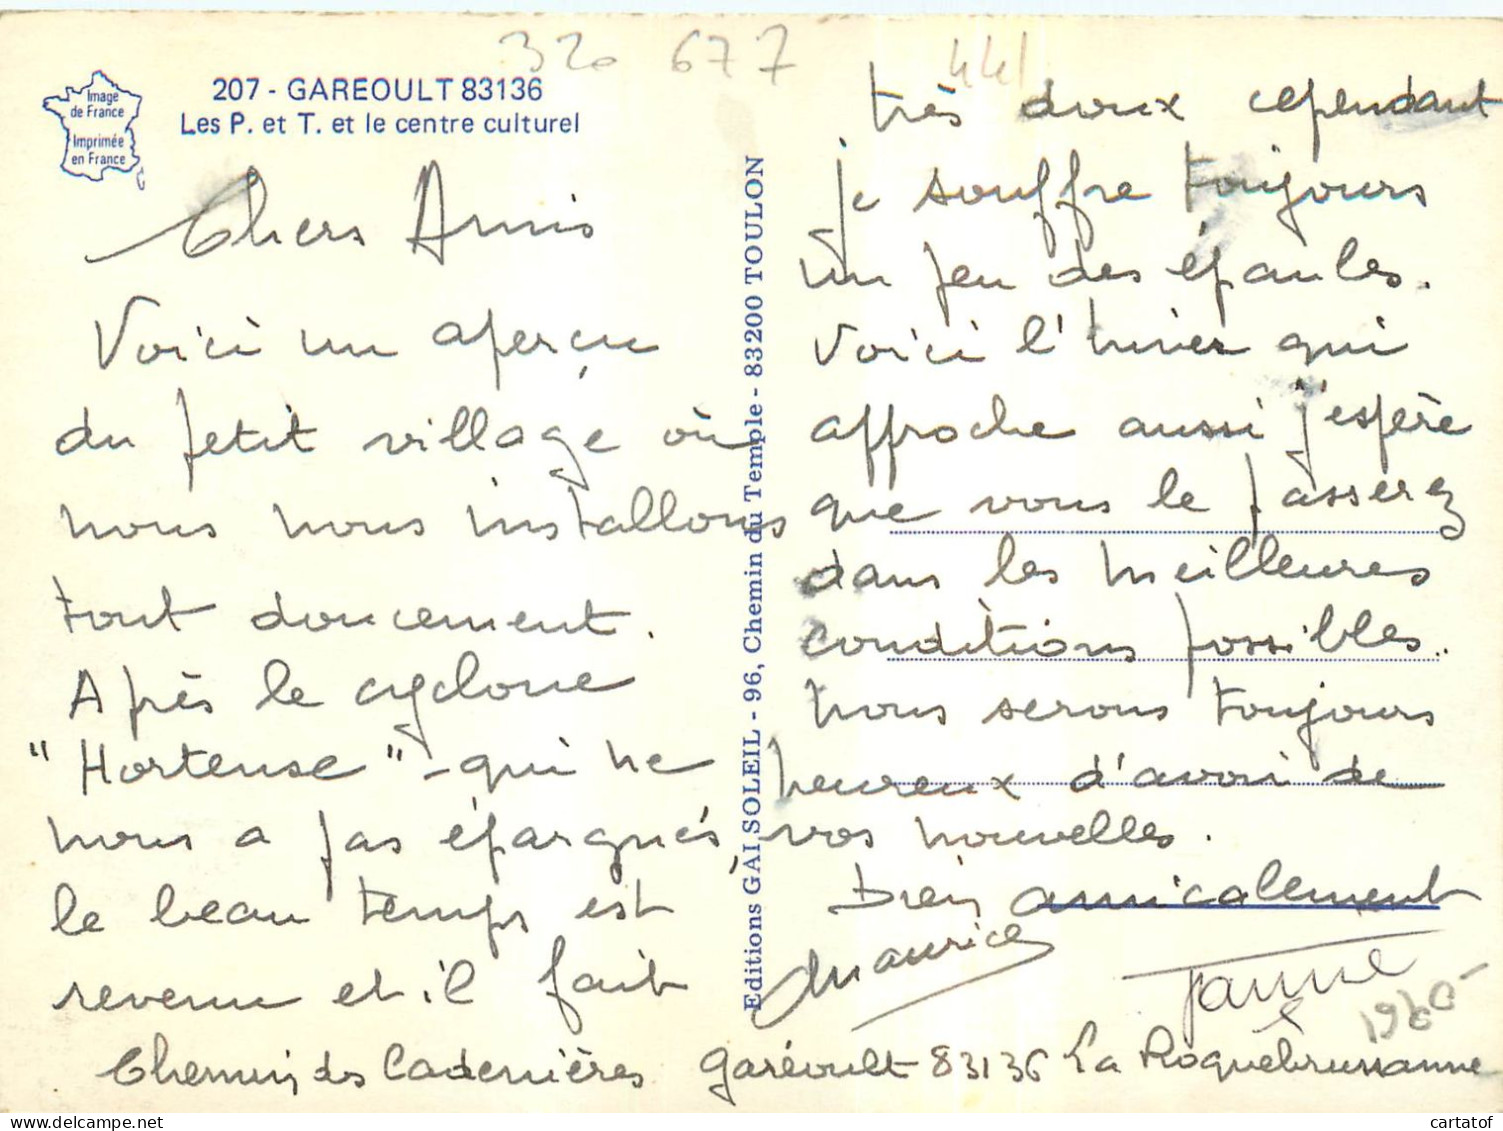 320 677 441
Image
de France
Imprimée
en France
207 - GAREOULT 83136
Les P. et T. et le centre culturel
Chers Amis
Voici un aperçu
du petit village où
nous nous installons
tout doucement.
Après le cyclone
"Hortense" - qui ne
nous a pas épargnés,
le beau temps est
revenu et il fait
Editions GAI SOLEIL - 96, Chemin du Temple - 83200 TOULON
très doux cependant
je souffre toujours
un peu des épaules.
Voici l'hiver qui
approche aussi j'espère
que vous le passerez
dans les meilleures
conditions possibles.
Nous serons toujours
heureux d'avoir de
vos nouvelles.
Bien amicalement
Maurice
Chemin des Cadenières Garéoult 83136 La Roquebrussanne
cartatof